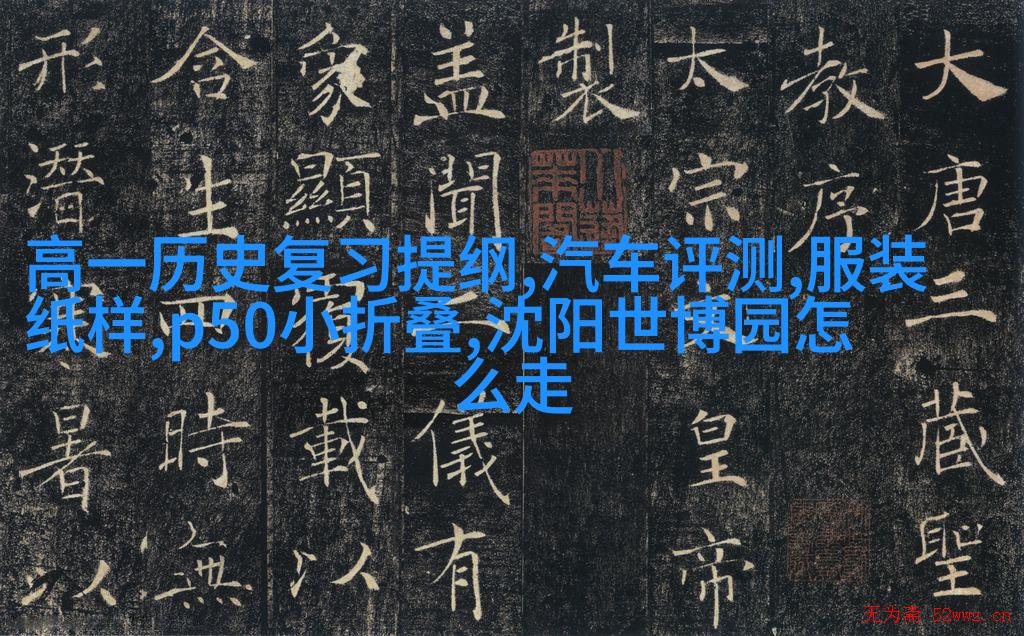 大唐三藏聖
教序
太宗皇帝
製
盖聞二儀有
象顯覆載以
含生時無
形潛暑以
高一历史复习提纲,汽车评测,服装
纸样,p50小折叠,沈阳世博园怎
么走
无为斋 52wwz.cn